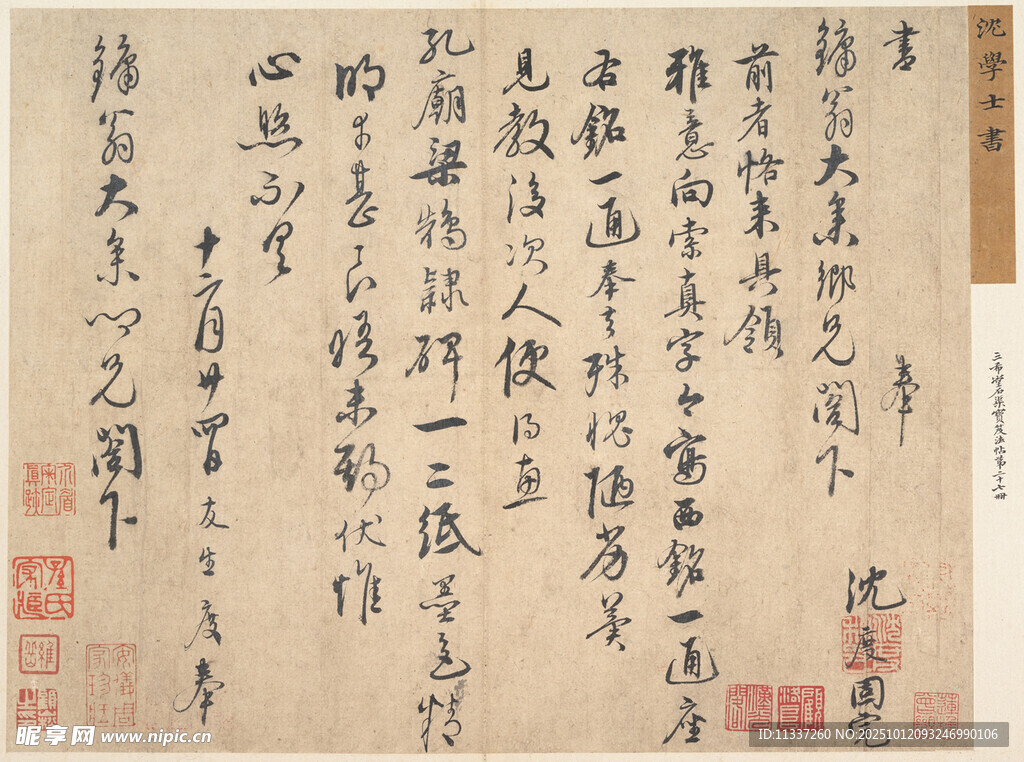 沈學士書
三希堂石渠寶笈法帖第二十七冊
書 奉
鏞翁大參鄉兄閣下
沈度固完
前者恪來具領
雅意向索真字今寫西銘一通座
右銘一通奉去殊愧陋劣冀
見教後次人便得惠
孔廟梁鵠隸碑一二紙墨色精
明幸甚良悟未期伏惟
心照不具
十二月廿四日友生度奉
鏞翁大參鄉兄閣下
昵享网 www.nipic.cn
ID:11337260 NO:20251012093246990106